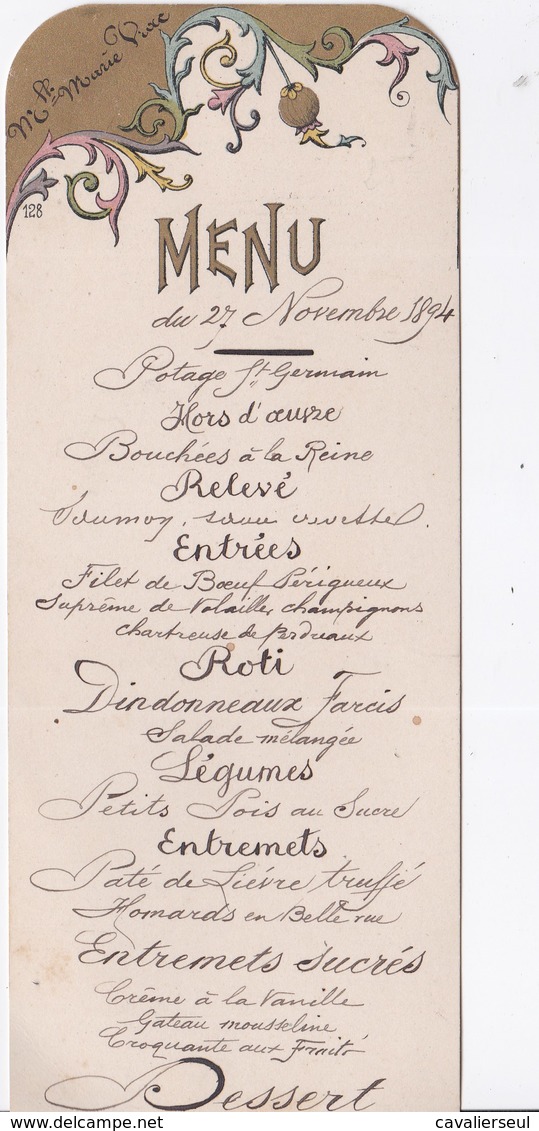 Mlle Marie Viac
128
MENU
du 27 Novembre 1894
Potage St Germain
Hors d'œuvre
Bouchées à la Reine
Relevé
Saumon, sauce crevettes.
Entrées
Filet de Bœuf Périgueux
Suprême de Volailles champignons
Chartreuse de Perdreaux
Roti
Dindonneaux Farcis
Salade mélangée
Légumes
Petits Pois au Sucre
Entremets
Paté de Lièvre truffé
Homards en Belle vue
Entremets sucrés
Crême à la Vanille
Gateau mousseline
Croquante aux Fruits
Dessert
Delcampe.net
cavalierseul